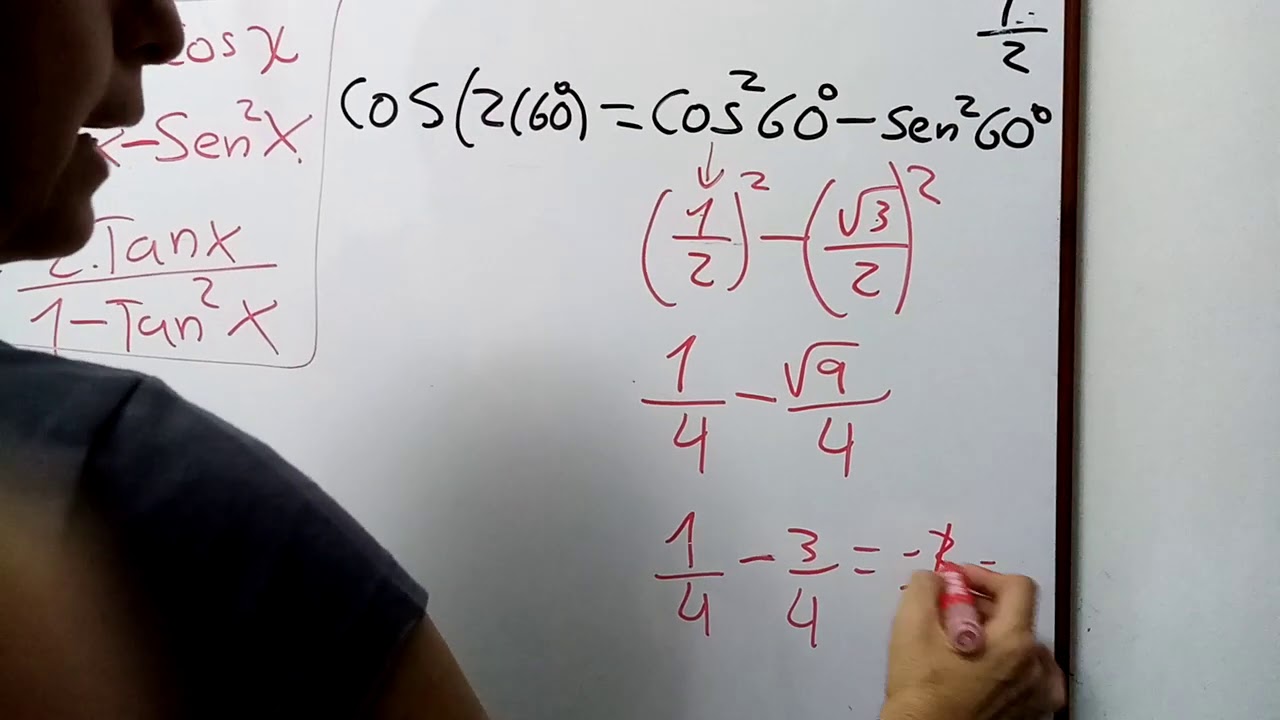 Cos x
x-Sen²X.
2.Tanx
1-Tan²X
1
2
COS(2(60°)=Cos²60°-Sen²60°
(1/2)²-(√3/2)²
1/4-√9/4
1/4-3/4=-